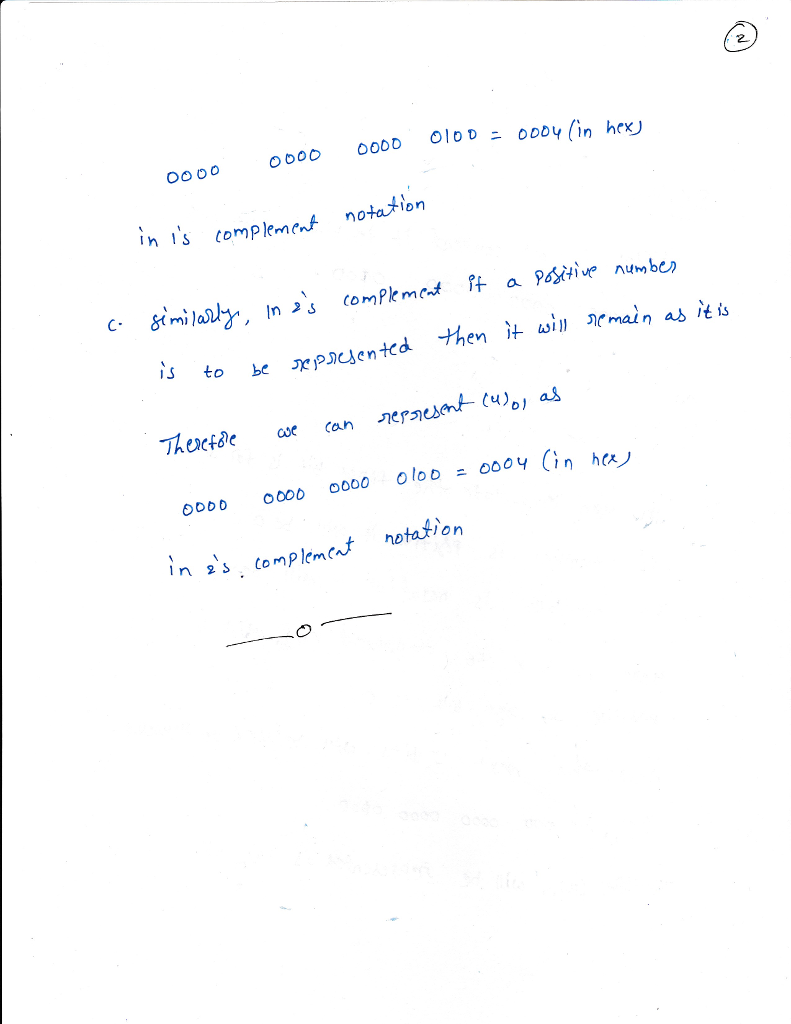 2
0000 0000 0000 0100 = 0004 (in hex)
in 1's complement notation
c. similarly, In 2's complement if a positive number
is to be represented then it will remain as it is
Therefore we can represent (4)01 as
0000 0000 0000 0100 = 0004 (in hex)
in 2's. complement notation